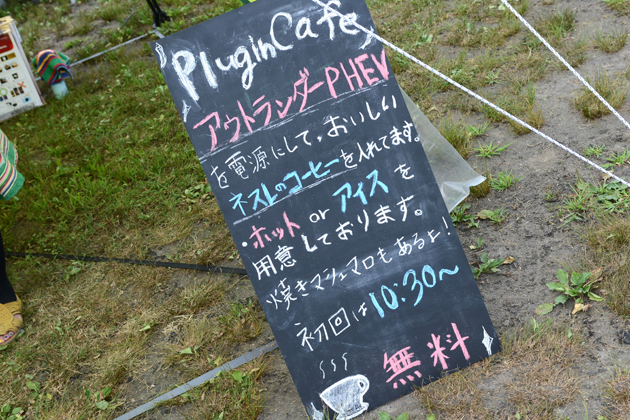 PluginCafe
アウトランダーPHEV
を電源にして、おいしい
ネスレのコーヒーを入れてます。
・ホット or アイスを
用意しております。
焼きマシュマロもあるよ!
初回は10:30〜
無料